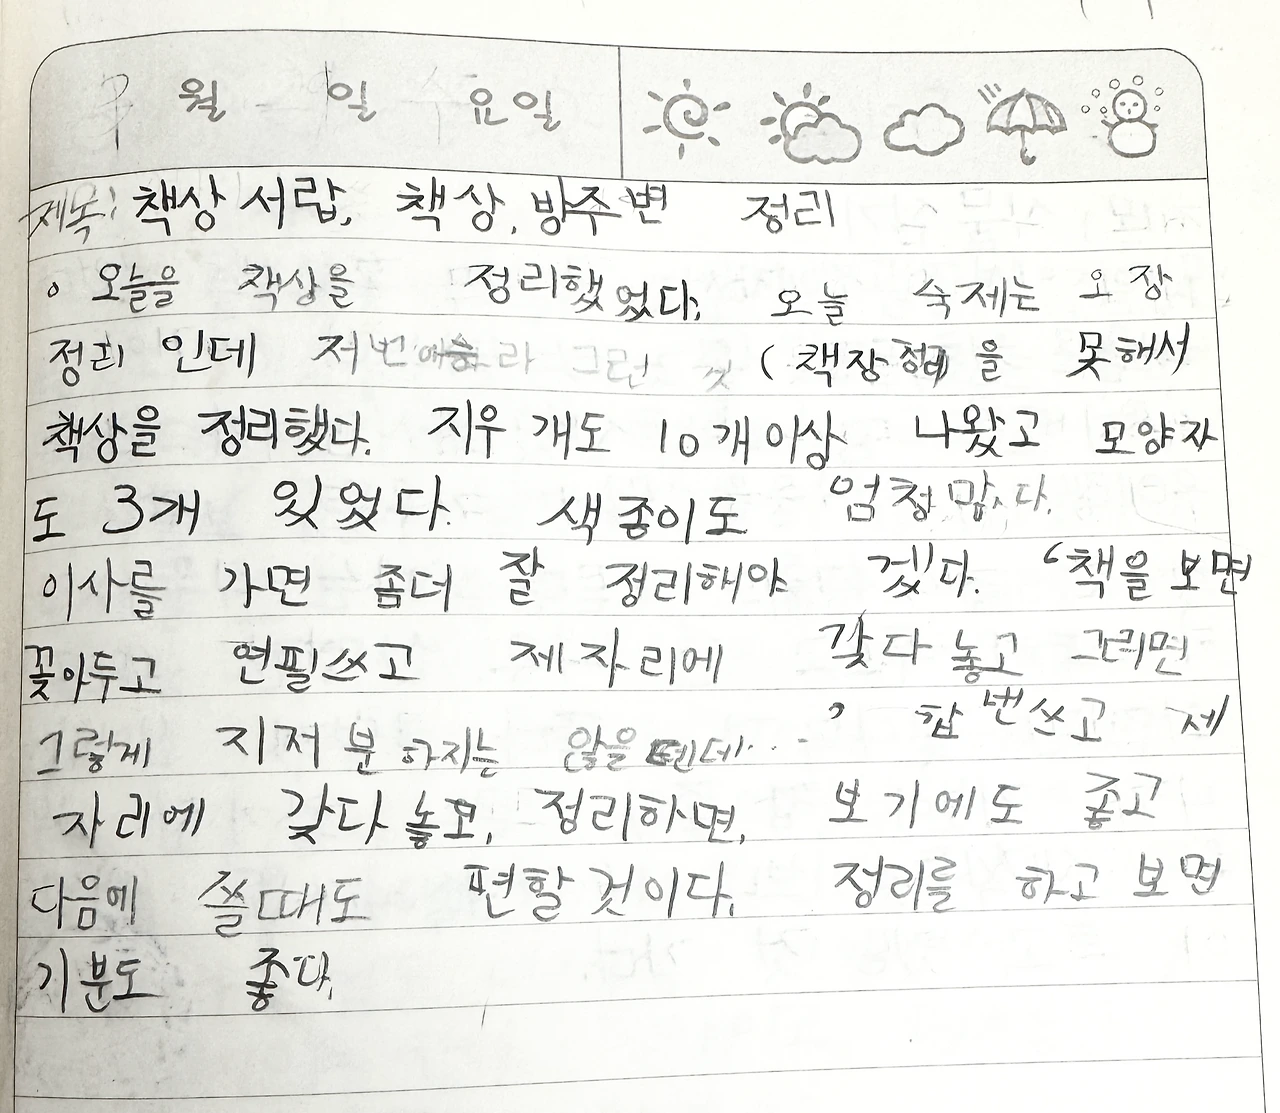 월 일 요일
제목: 책상 서랍, 책상, 방주변 정리
오늘을 책상을 정리했었다. 오늘 숙제는 오장
정리 인데 저번 라 그런 (책장 정리을 못해서
책상을 정리했다. 지우개도 10개이상 나왔고 모양자
도 3개 있었다. 색종이도 엄청많다.
이사를 가면 좀더 잘 정리해야 겠다. ‘책을 보면
꽃아두고 연필쓰고 제자리에 갖다 놓고 그러면
그렇게 지저분하지는 않을 텐데... ’ 한번쓰고 제
자리에 갖다 놓고, 정리하면, 보기에도 좋고
다음에 쓸때도 편할것이다. 정리를 하고보면
기분도 좋다.